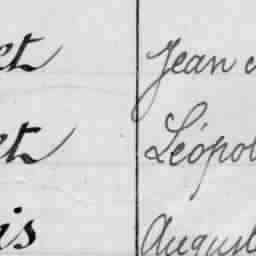 et Jean
et Léopol
is August